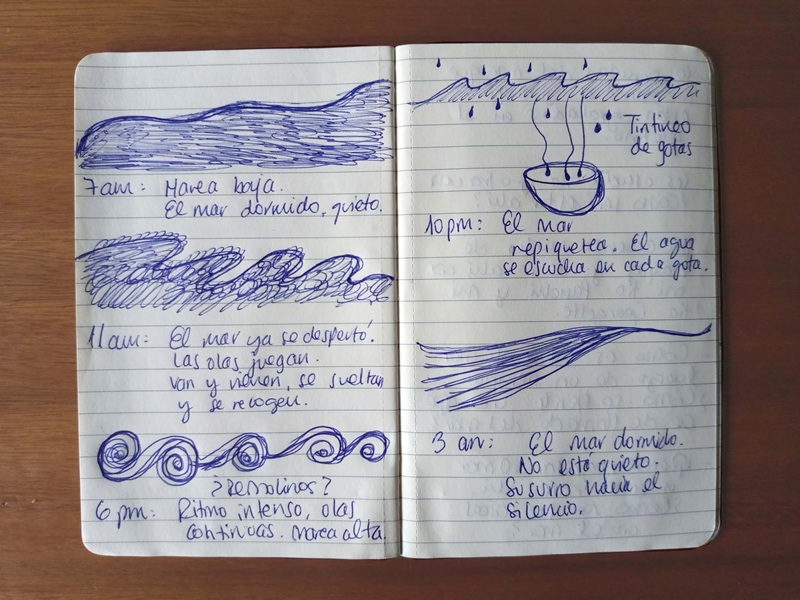 7am: Marea baja.
El mar dormido, quieto.
11am: El mar ya se despertó.
Las olas juegan.
Van y vienen, se sueltan
y se recogen.
¿Remolinos?
6 pm: Ritmo intenso, olas
continuas. Marea alta.
Tintineo
de gotas
10pm: El mar
repiquetea. El agua
se escucha en cada gota.
3 am: El mar dormido.
No está quieto.
Susurro hacia el
silencio.